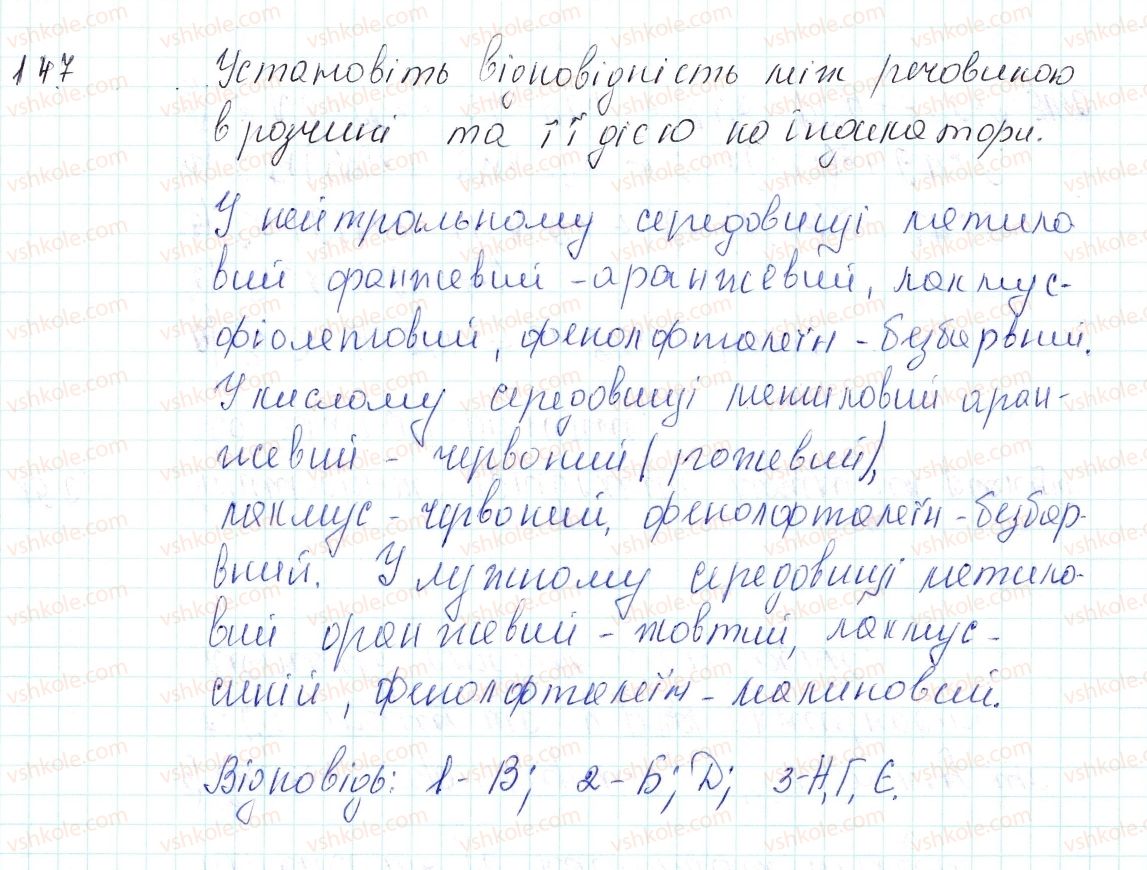 147 Установіть відповідність між речовиною
в розчині та її дією на індикатори.
У нейтральному середовищі метило
вий оранжевий - аранжевий, лакмус-
фіолетовий, фенолфталеїн - безбарвний.
У кислому середовищі метиловий аран-
жевий - червоний (рожевий),
лакмус - червоний, фенолфталеїн - безбар-
вний. У лужному середовищі метило-
вий оранжевий - жовтий, лакмус -
синій, фенолфталеїн - малиновий.
Відповідь: 1 - В; 2 - Б; Д; 3-Н, Г, Є.